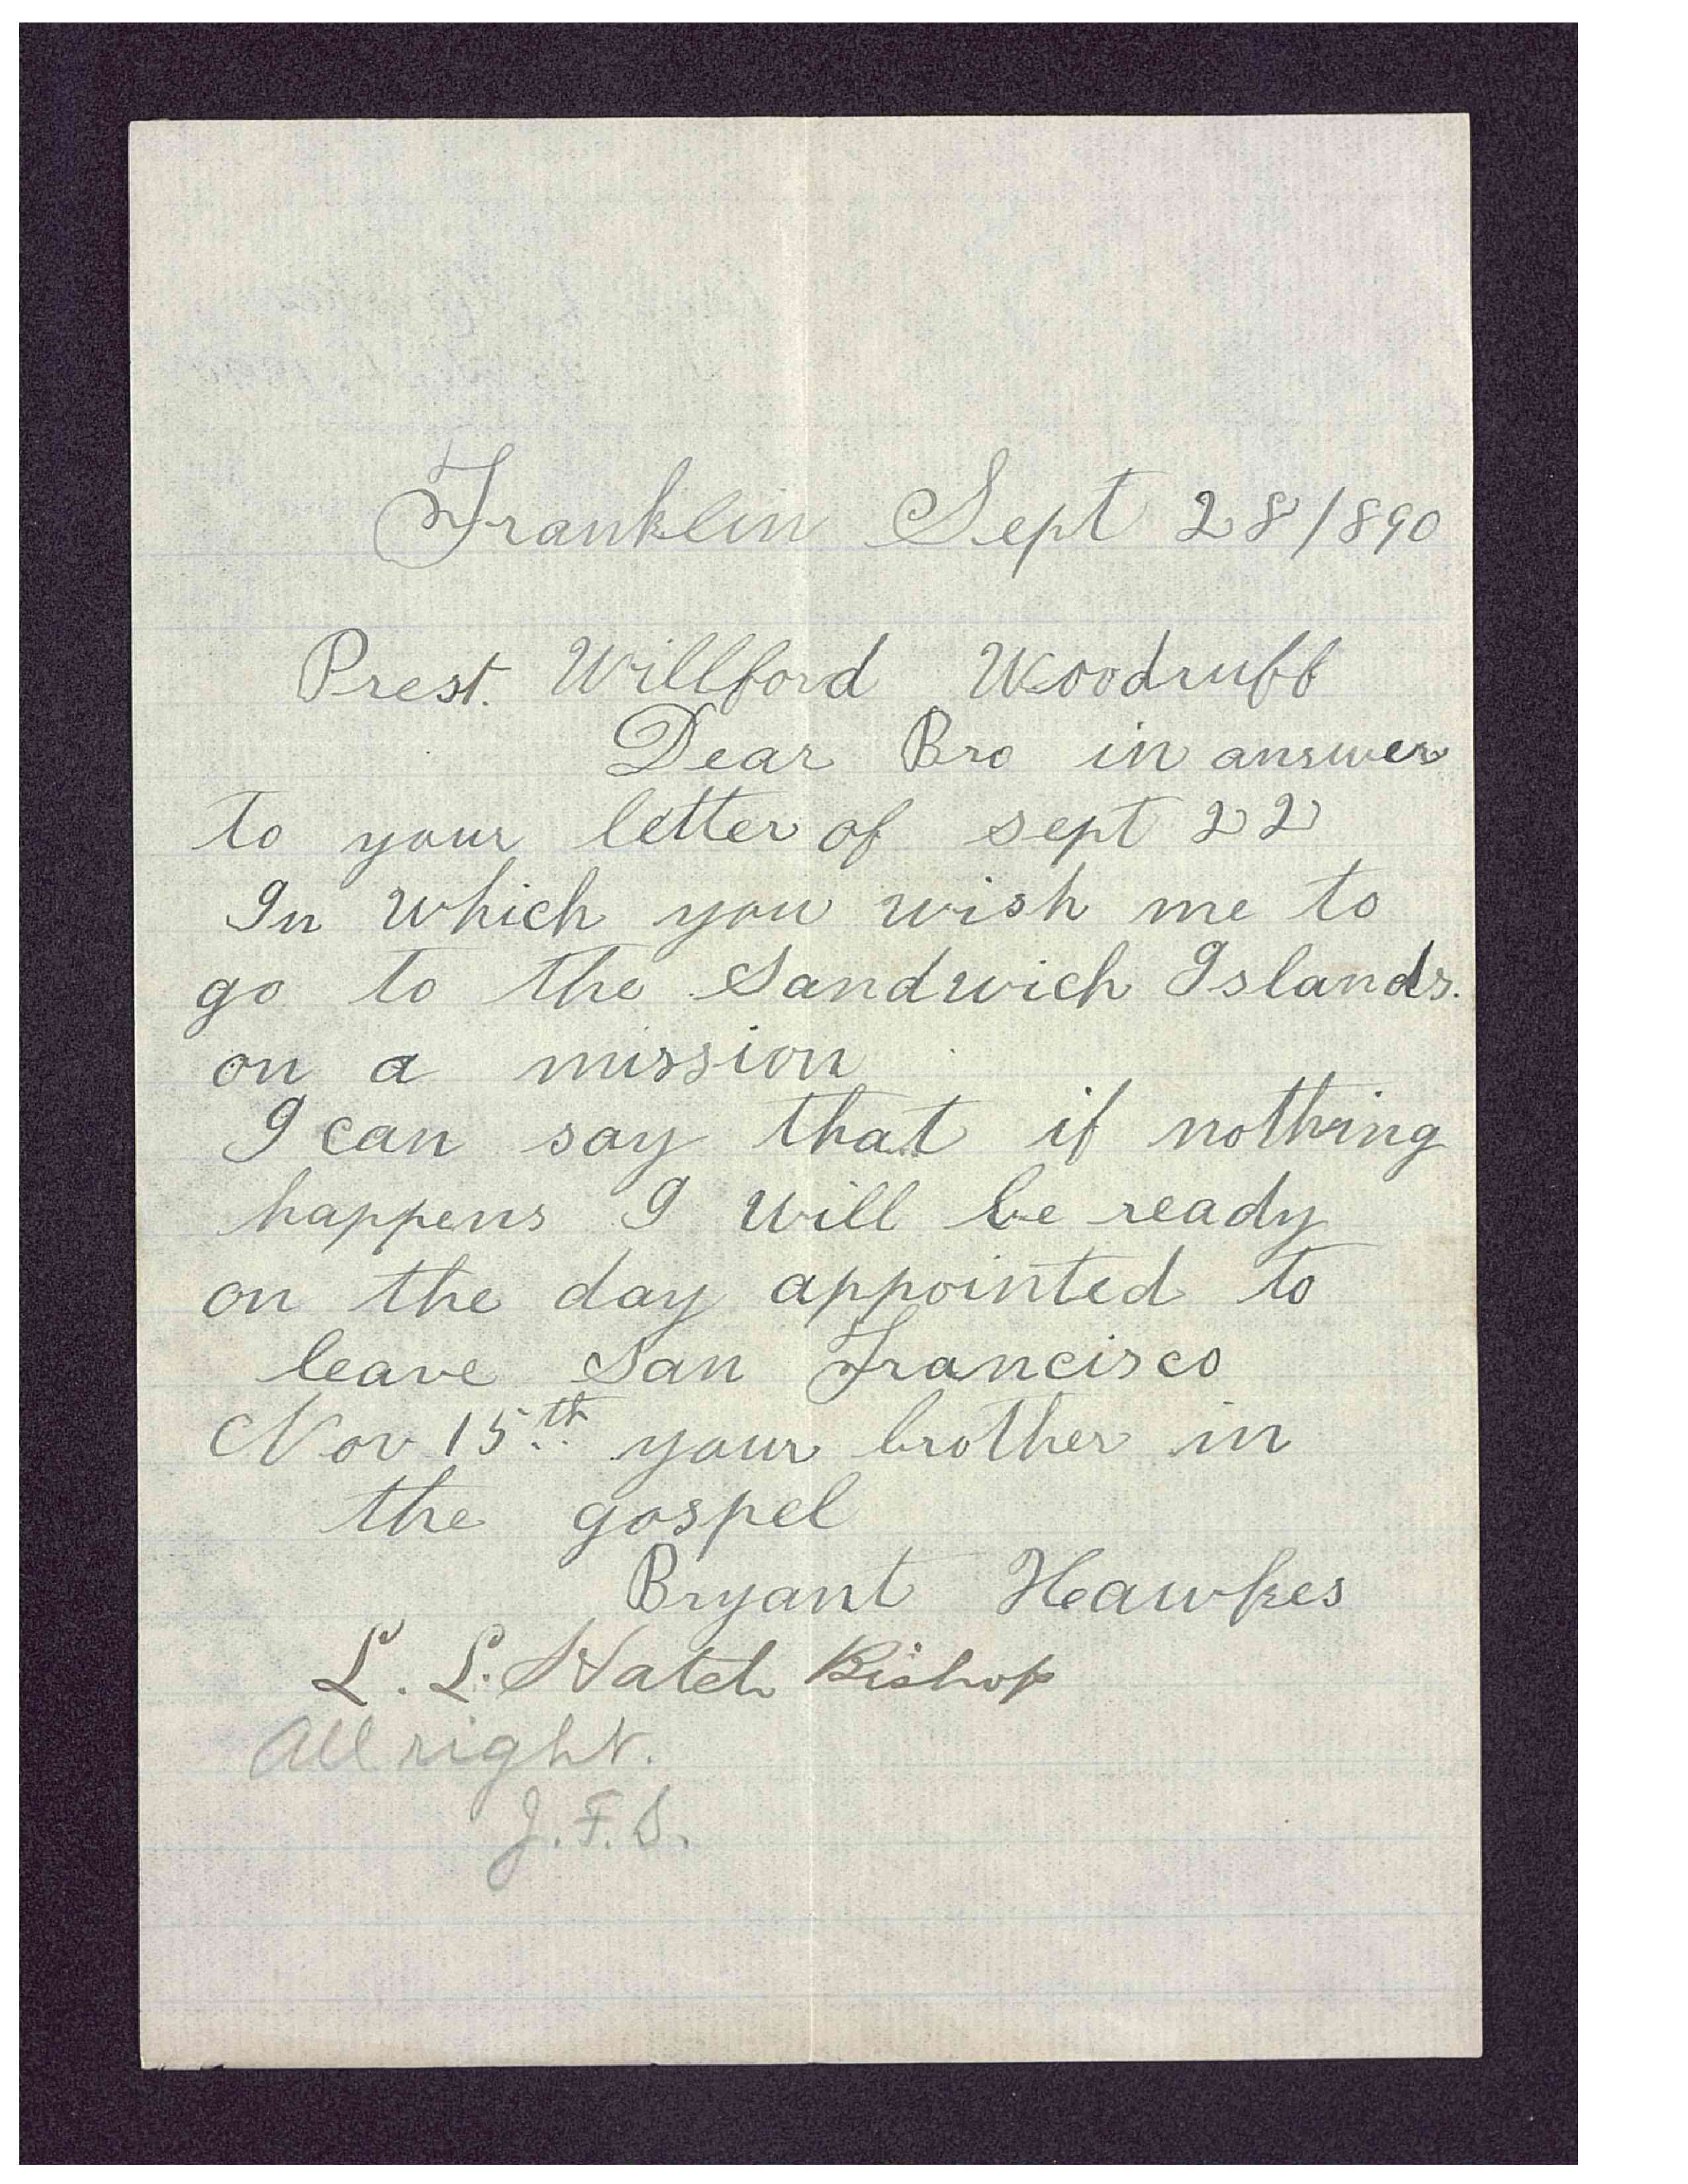 Franklin Sept 28/890
Prest. Willford Woodruff
Dear Bro in answer
to your letter of sept 22
In which you wish me to
go to the Sandwich Islands.
on a mission
I can say that if nothing
happens I will be ready
on the day appointed to
leave San Francisco
Nov 15th your brother in
the gospel
Bryant Hawkes
L. L. Hatch Bishop
All right.
J. F. S.